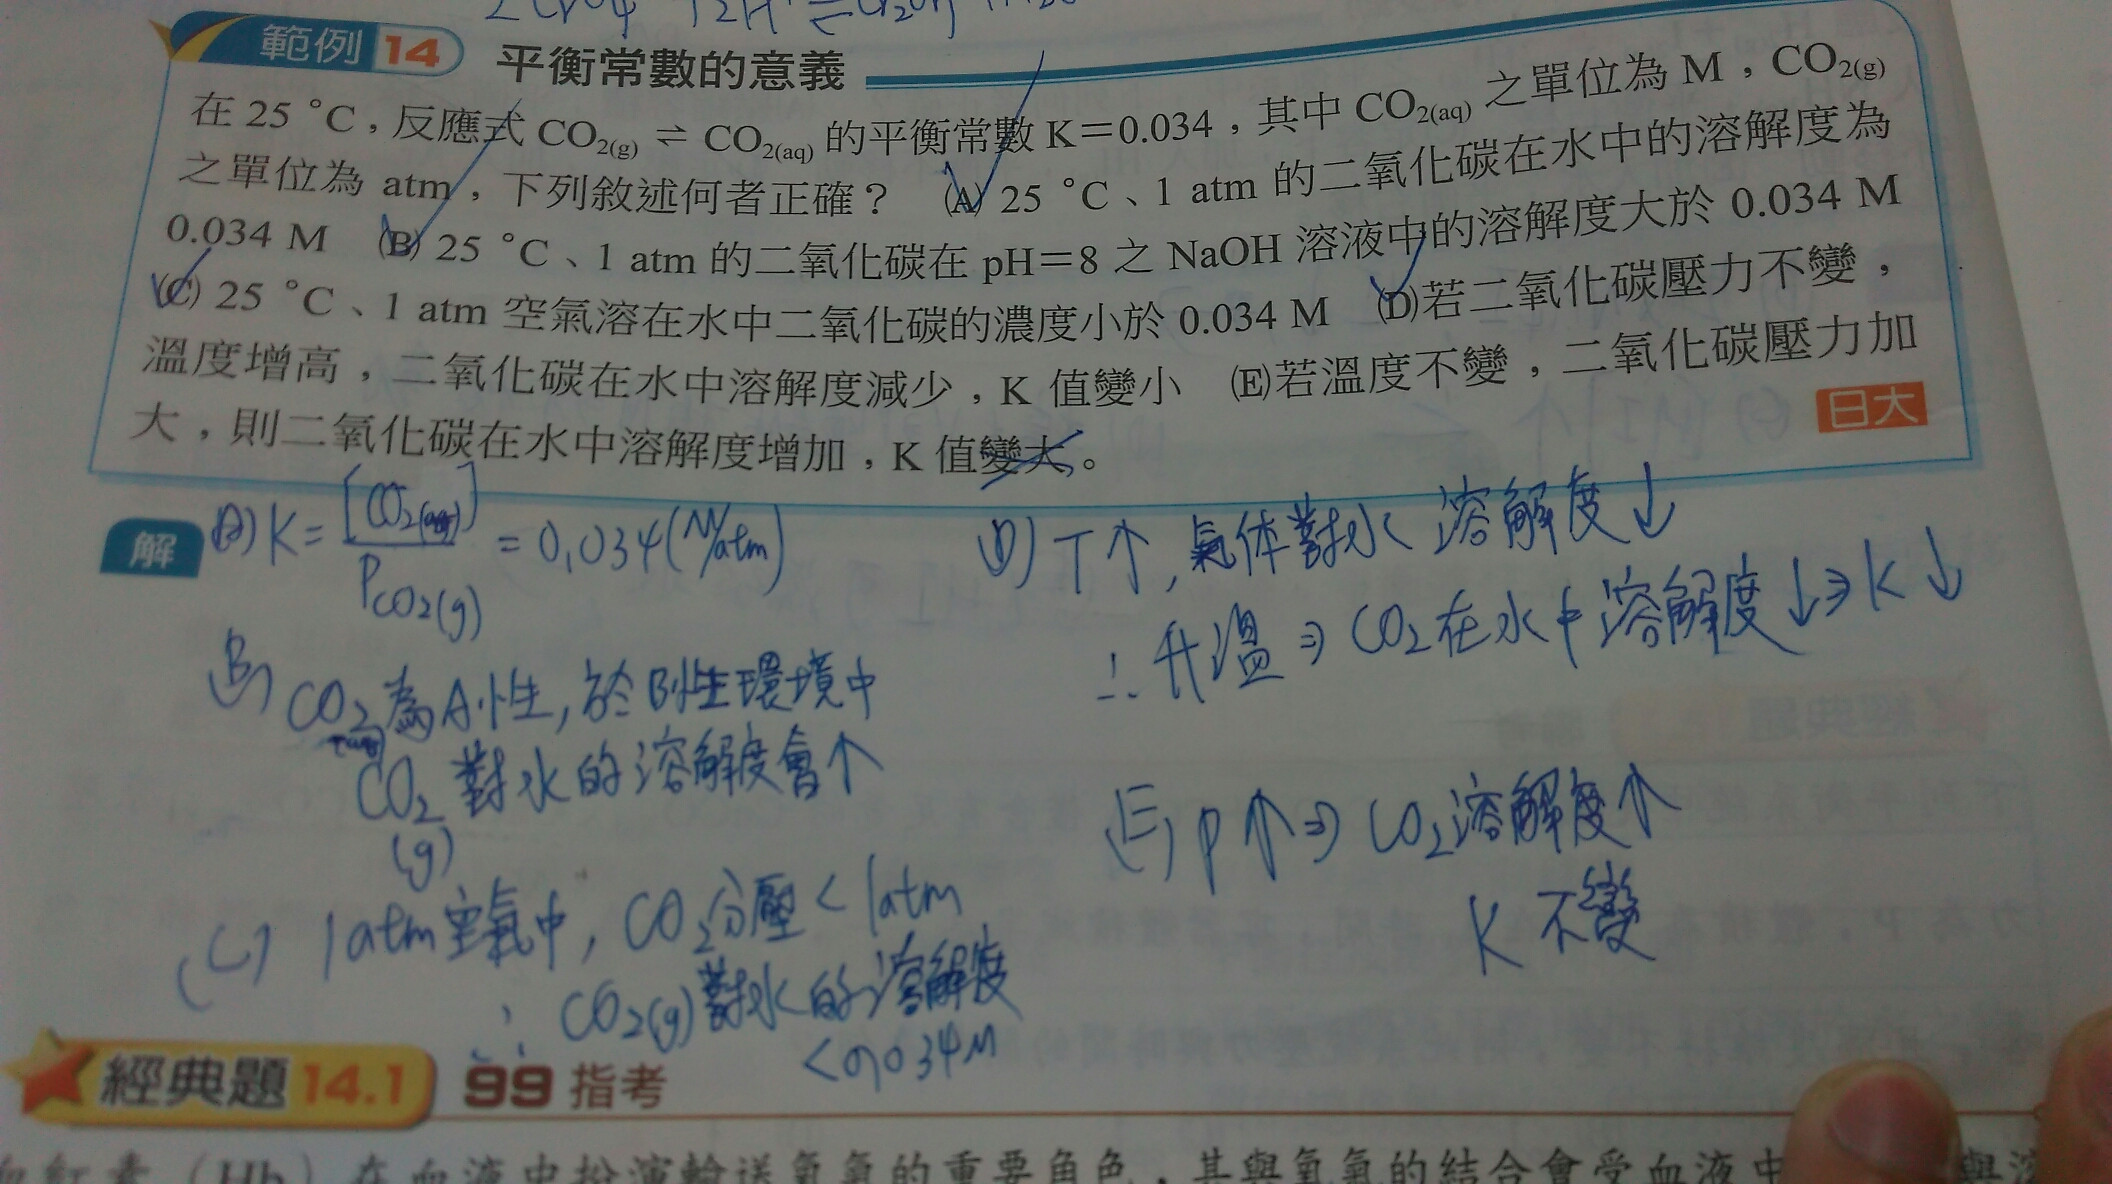 範例 14 平衡常數的意義
在 25 °C，反應式 CO2(g) ⇌ CO2(aq) 的平衡常數 K＝0.034，其中 CO2(aq) 之單位為 M，CO2(g)
之單位為 atm，下列敘述何者正確？ (A) 25 °C、1 atm 的二氧化碳在水中的溶解度為
0.034 M (B) 25 °C、1 atm 的二氧化碳在 pH＝8 之 NaOH 溶液中的溶解度大於 0.034 M
(C) 25 °C、1 atm 空氣溶在水中二氧化碳的濃度小於 0.034 M (D)若二氧化碳壓力不變，
溫度增高，二氧化碳在水中溶解度減少，K 值變小 (E)若溫度不變，二氧化碳壓力加
大，則二氧化碳在水中溶解度增加，K 值變大。 日大
解 (A) K = [CO2(aq)] / PCO2(g) = 0.034 (M/atm)
(B) CO2為A性，於B性環境中
CO2(g) 對水的溶解度會↑
(C) 1atm空氣中, CO2分壓 < 1atm
∴ CO2(g)對水的溶解度
<0.034M
(D) T↑, 氣体對水溶解度↓
∴ 升溫 ⇒ CO2在水中溶解度↓⇒K↓
(E) P↑⇒ CO2溶解度↑
K 不變
經典題 14.1 99 指考
血紅素 (Hb) 在血液中扮演輸送氧氣的重要角色，其與氧氣的結合會受血液中